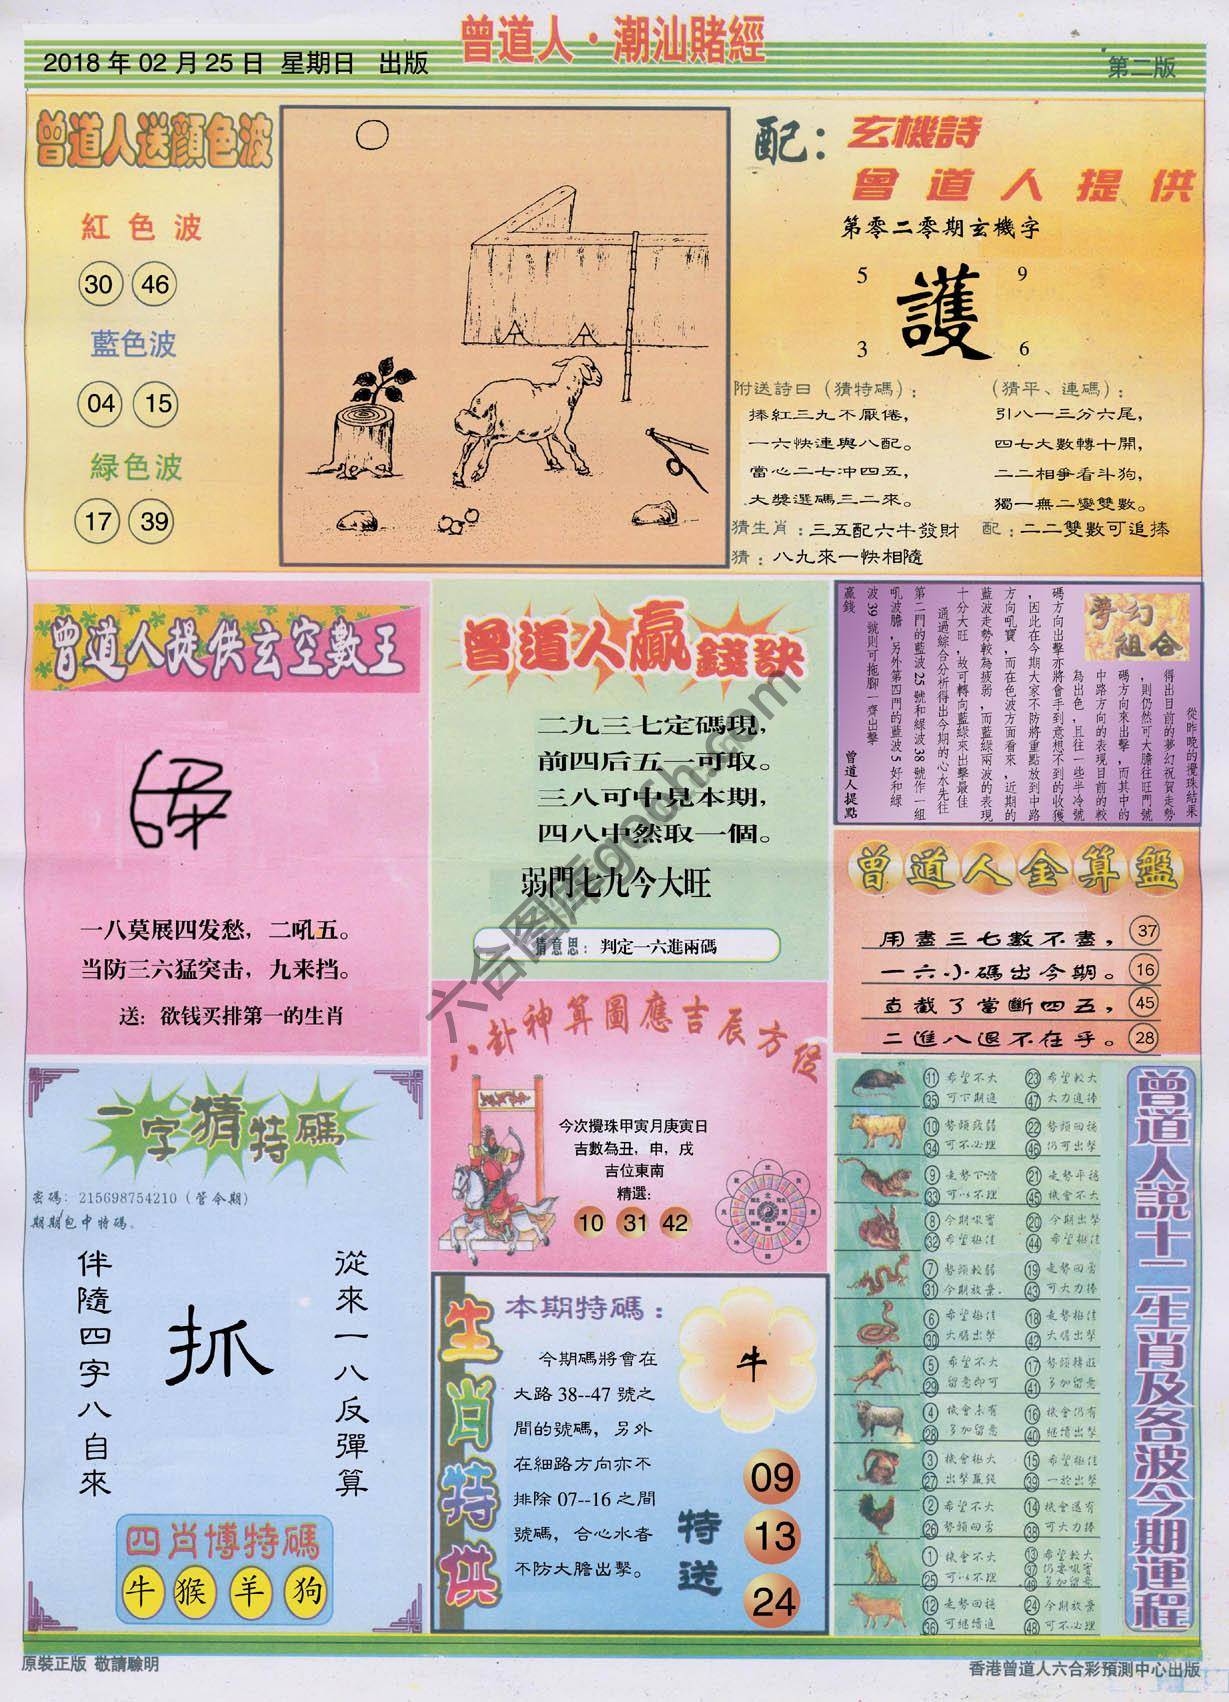 曾道人·潮汕賭經
2018年02月25日 星期日 出版
第二版
曾道人送顏色波
紅色波
30 46
藍色波
04 15
緑色波
17 39
配:
玄機詩
曾道人提供
第零二零期玄機字
5 9
護
3 6
附送詩曰(猜特碼):
捧紅三九不厭倦,
一六快連與八配。
當心二七冲四五,
大獎選碼三二來。
(猜平、連碼):
引八一三分六尾,
四七大數轉十開,
二二相爭看斗狗,
獨一無二變雙數。
猜生肖:三五配六牛發財
配:二二雙數可追捧
猜:八九來一快相隨
曾道人提供玄空數王
一八莫展四发愁,二吼五。
当防三六猛突击,九来挡。
送:欲钱买排第一的生肖
曾道人贏錢訣
二九三七定碼現,
前四后五一可取。
三八可中見本期,
四八中然取一個。
弱門七九今大旺
猜意思:判定一六進兩碼
夢幻組合
從昨晚的攪珠結果
得出目前的夢幻祝賀走勢
,則仍然可大膽往旺門號
碼方向來出擊,而其中的
中路方向的表現目前的較
為出色,且往一些半冷號
碼方向出擊亦將會手到意想不到的收獲
,因此在今期大家不防將重點放到中路
方向吼寶,而在色波方面看來,近期的
藍波走勢較為疲弱,而藍綠兩波的表現
十分大旺,故可轉向藍綠來出擊最佳
通過綜合分析得出今期的心水先往
第二門的藍波25號和綠波38號作一組
吼波膽,另外第四門的藍波5好和綠
波39號則可拖腳一齊出擊
贏錢
曾道人提點
曾道人金算盤
用盡三七數不盡,37
一六小碼出今期。16
直截了當斷四五,45
二進八退不在乎。28
八卦神算圖應吉辰方位
今次攪珠甲寅月庚寅日
吉數為丑,申,戌
吉位東南
精選:
10 31 42
一字猜特碼
密碼:215698754210(管令期)
期期包中特碼。
從來一八反彈算
抓
伴隨四字八自來
四肖博特碼
牛 猴 羊 狗
生肖特供
本期特碼:
今期碼將會在
大路38--47號之
間的號碼,另外
在細路方向亦不
排除07--16之間
號碼,合心水者
不防大膽出擊。
牛
特送
09
13
24
曾道人説十二生肖及各波今期運程
11 希望不大 23 希望較大
35 可下期進 47 大力追捧
10 勢頭疲弱 22 勢頭回穩
34 可不必理 46 仍可出擊
9 走勢下滑 21 走勢平穩
33 可以不理 45 機會不大
8 今期吼寶 20 今期出擊
32 希望極佳 44 希望極佳
7 勢頭較弱 19 走勢回勇
31 今期放棄 43 可大力捧
6 希望極佳 18 走勢極佳
30 大膽出擊 42 大膽出擊
5 希望不大 17 勢頭轉旺
29 留意即可 41 多加留意
4 機會未有 16 機會仍有
28 多加留意 40 繼續出擊
3 機會極大 15 希望極佳
27 出擊贏錢 39 一於出擊
2 希望不大 14 機會還有
26 勢頭回勇 38 可大力捧
1 機會不大 13 希望較大
25 可以不理 37 仍要吼實
49 多加留意
12 走勢回穩 24 今期放棄
36 可繼續追 48 可不必理
原裝正版 敬請驗明
香港曾道人六合彩預測中心出版
六合图库gocn.com